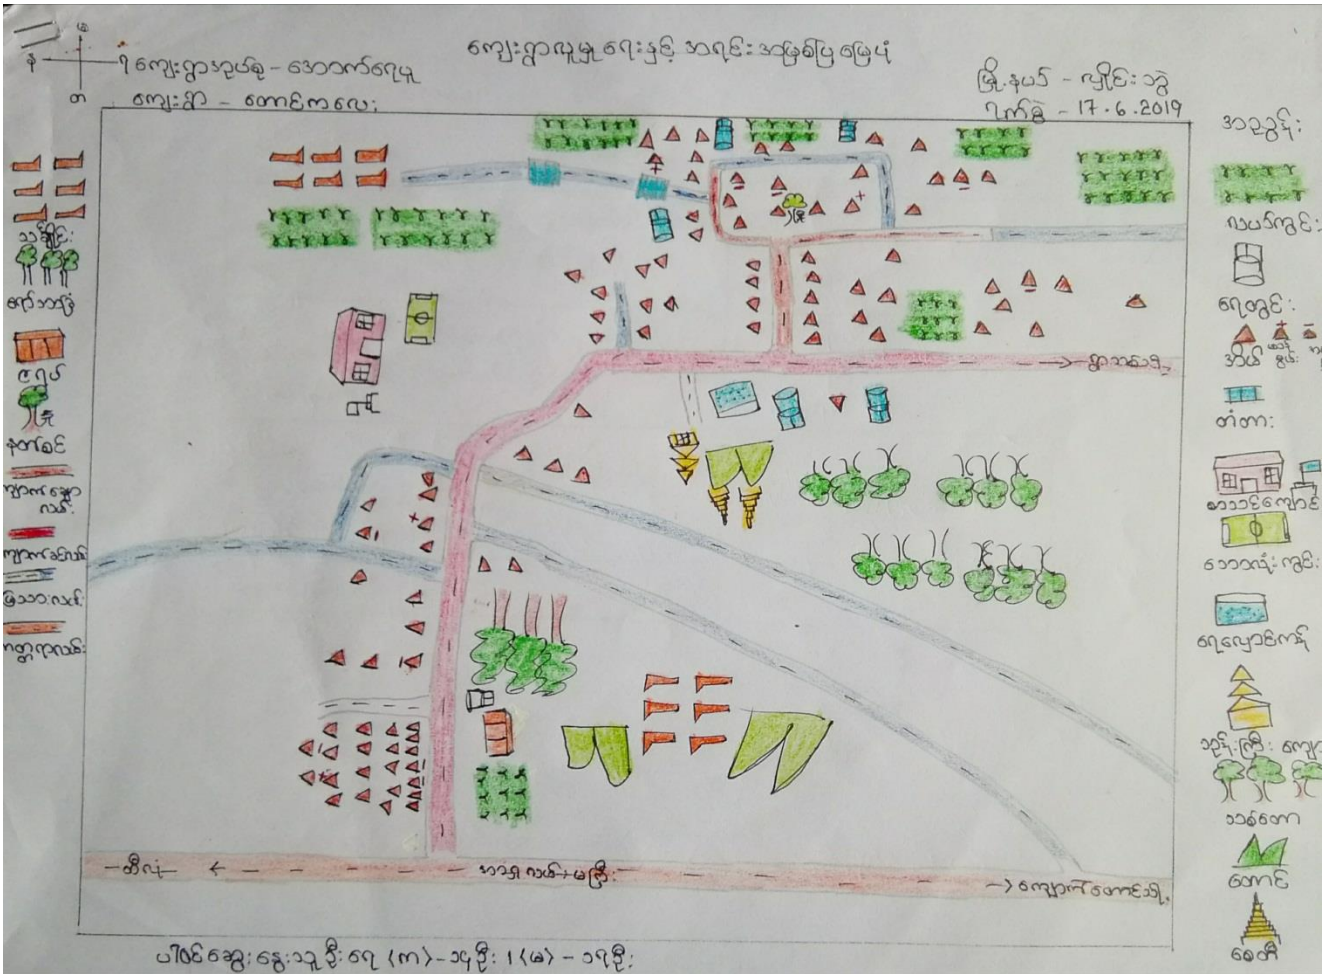 ကျေးရွာလူမှုရေးနှင့် အရင်းအမြစ်ပြမြေပုံ
မ
န
တ
ကျေးရွာအုပ်စု - အောက်ရေပူ
ကျေးရွာ - တောင်ကလေး
မြို့နယ် - လှိုင်းဘွဲ
ရက်စွဲ - 17.6.2019
အညွှန်း
သင်္ချိုင်း
ရော်ဘာခြံ
ဇရပ်
နတ်စင်
ကျောက်ချောလမ်း
ကျောက်ခင်းလမ်း
မြေသားလမ်း
ကတ္တရာလမ်း
လယ်ကွင်း
ရေတွင်း
အိမ်
တံတား
စာသင်ကျောင်း
ဘောလုံးကွင်း
ရေလှောင်ကန်
ဘုန်းကြီးကျောင်း
သစ်တော
တောင်
စေတီ
ရွာသစ်သို့
အာရှလမ်းမကြီး
ကျောက်တောင်သို့
ပါဝင်ဆွေးနွေးသူဦးရေ (က) - ၁၄ဦး ၊ (မ) - ၁၇ဦး